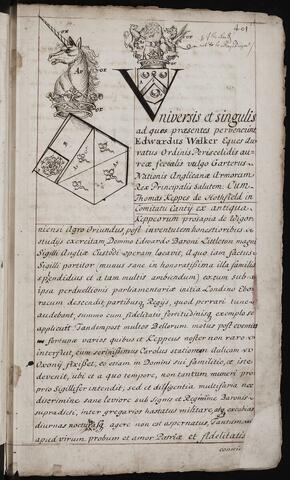 401
or
or
Ar
or
Vniversis et singulis
ad quos presentes pervenerint
Edwardus Walker Eques Au
ratus Ordinis Periscelidis au
reæ fecialis vulgo Garterus
Nationis Anglicanæ Armorum
Rex Principalis Salutem. Cum
Thomas Keppes de Hothfeild in
Comitatu Cantij ex antiqua
Keppeorum prosapia de Wigor
niensi Agro Oriundus post inventutem honestioribus
studijs exercitam Domino Edwardo Baroni Littleton magni
Sigilli Angliæ Custodi operam locavit, A quo tam factus
Sigilli portitor, munus sane in honoratissima illa familia
splendidius et a tam multis ambiendum; ex tum sub
ipsa perduellionis parliamentariæ initia Londino Ebo
racum descendit partibusq Regijs, quod perrari tunc
audebant, summo cum fidelitatis fortitudinisq exemplo se
applicuit Tandem post multos Bellorum motus post
fortunæ varios quibus et Keppeus noster non raro
interfuit, cum serenissimus Carolus stationem Aulicam
Oxonij fixisset, eo etiam in Domini sui familitio, et
devenit, ubi et a quo tempore, non tantum muneri pro
prio Sigillifer intendit, sed et diligentia multifaria nec
discrimine sane leviore sub Signis et Regimine Baronis
supradicti, inter gregarios hastatus militare, atq excubias
diurnas nocturnasq agere non est aspernatus, Tantum
apud virum probum et amor Patriæ et fidelitatis